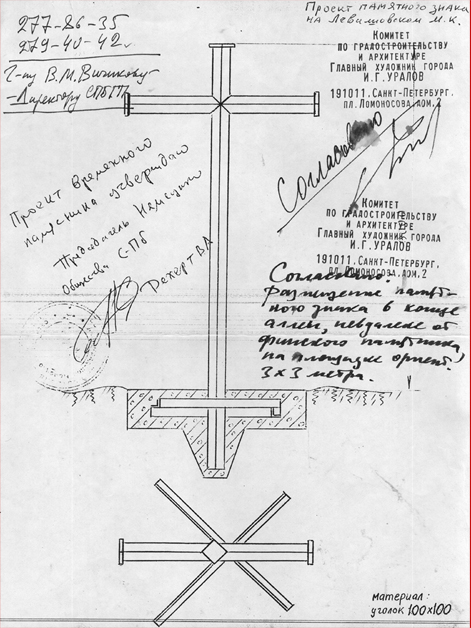 Проект памятного знака
на Левашовском м.к.
277-86-35
279-40-42
Г-ну В.М.
-Директору СПбГП
Комитет
по градостроительству
и архитектуре
Главный художник города
И.Г.УРАЛОВ
191011.Санкт-Петербург.
пл.Ломоносова,дом.2
Согласовано
Проект временного
памятника утверждаю
Председатель Немецкого
Общества СПб
Дехерт ВА
Комитет
по градостроительству
и архитектуре
Главный художник города
И.Г.УРАЛОВ
191011.Санкт-Петербург.
пл.Ломоносова,дом.2
Согласовано.
Размещение памят-
ного знака в конце
аллеи, невдалеке от
финского памятника
на площадке ориент.
3х3 метра.
материал:
уголок 100х100